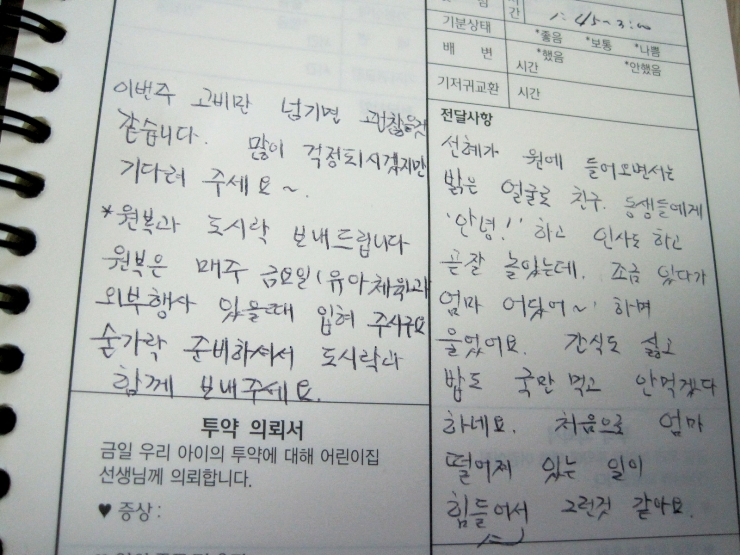 시
간
1:45~3:00
기분상태
*좋음 *보통 *나쁨
배 변
*했음 *안했음
시간
기저귀교환
시간
전달사항
선혜가 원에 들어오면서는
밝은 얼굴로 친구. 동생들에게
'안녕!' 하고 인사도 하고
곧잘 놀았는데. 조금 있다가
엄마 어딨어~' 하며
울었어요. 간식도 싫고
밥도 국만 먹고 안먹겠다
하네요. 처음으로 엄마
떨어져 있는 일이
힘들어서 그런것 같아요.
이번주 고비만 넘기면 괜찮을것
같습니다. 많이 걱정되시겠지만
기다려 주세요~.
*원복과 도시락 보내드립니다
원복은 매주 금요일(유아체육)과
외부행사 있을때 입혀 주시구요
숟가락 준비하셔서 도시락과
함께 보내주세요.
투약 의뢰서
금일 우리 아이의 투약에 대해 어린이집
선생님께 의뢰합니다.
♥ 증상 :